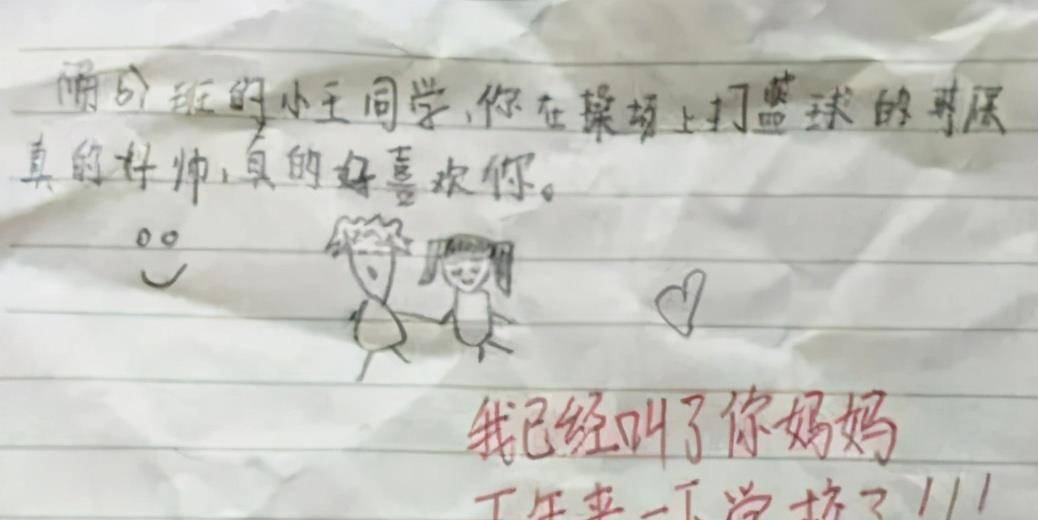 隔的班的小王同学,你在操场上打蓝球的时候
真的好帅,真的好喜欢你。
我已经叫了你妈妈
下午来一下学校了!!!